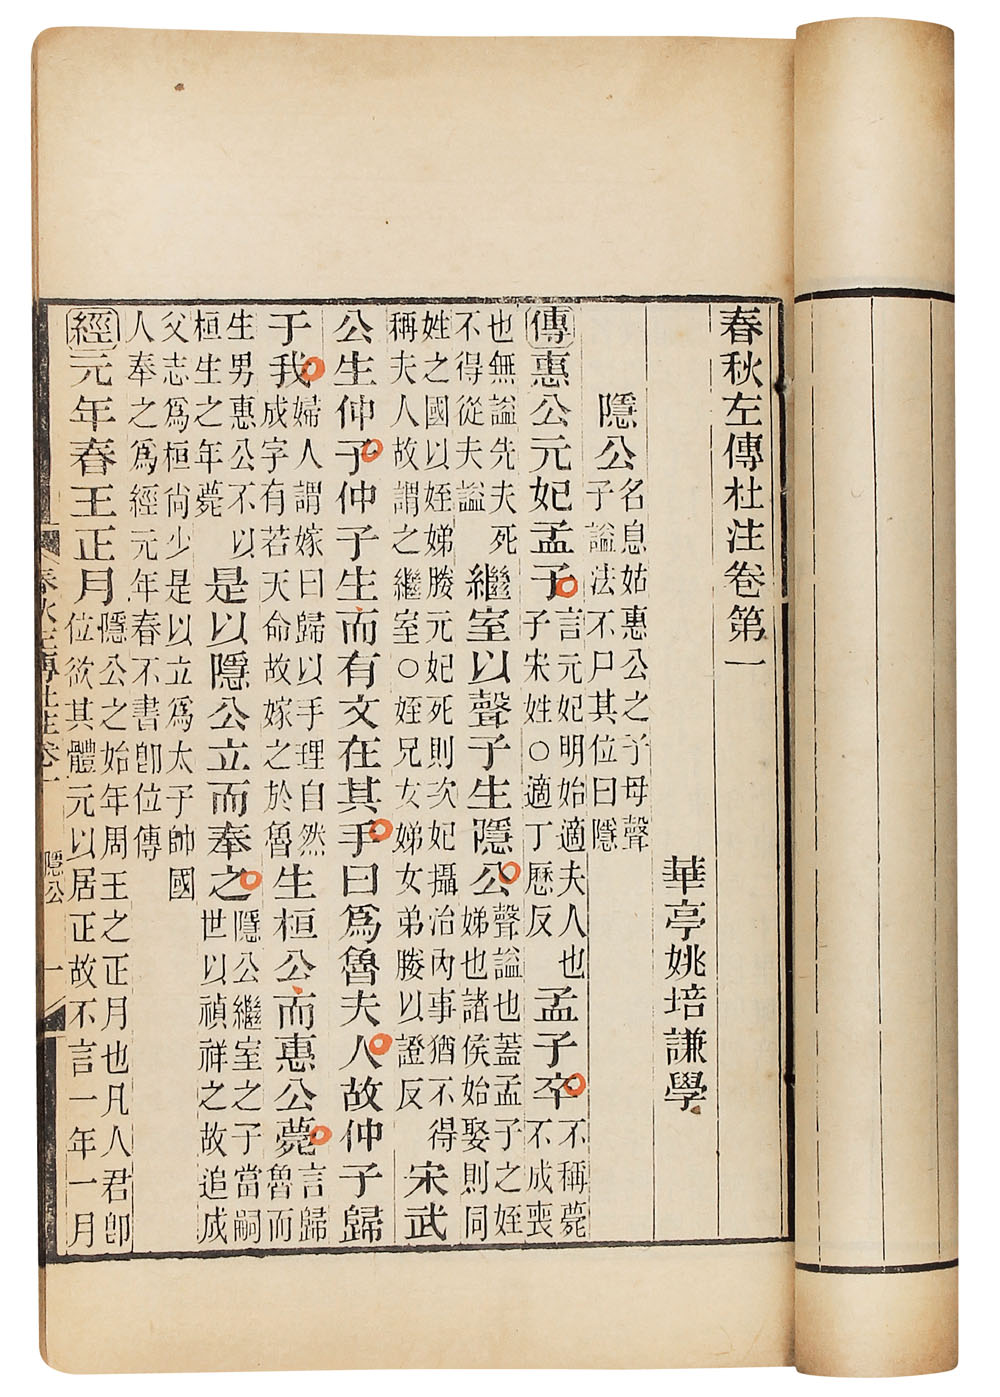 春秋左傳杜注卷第一
華亭姚培謙學
隱公名息姑惠公之子母聲子謚法不尸其位曰隱
傳惠公元妃孟子言元妃明始適夫人也子宋姓○適丁歷反孟子卒不稱薨不成喪
也無謚先夫死不得從夫謚繼室以聲子生隱公聲謚也蓋孟子之姪娣也諸侯始娶則同
姓之國以姪娣媵元妃死則次妃攝治內事猶不得稱夫人故謂之繼室○姪兄女娣女弟媵以證反宋武
公生仲子仲子生而有文在其手曰爲魯夫人故仲子歸
于我婦人謂嫁曰歸以手理自然成字有若天命故嫁之於魯生桓公而惠公薨言歸魯而
生男惠公不以桓生之年薨是以隱公立而奉之隱公繼室之子當嗣世以禎祥之故追成
父志爲桓尚少是以立爲太子帥國人奉之爲經元年春不書卽位傳
經元年春王正月隱公之始年周王之正月也凡人君卽位欲其體元以居正故不言一年一月
春秋左傳杜注卷一 隱公 一